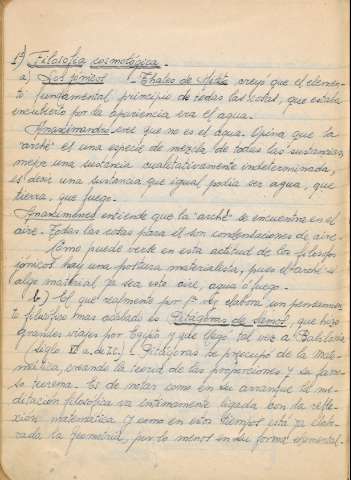 1º) Filosofía cosmológica.-
a) Los jónicos - Thales de Mileto creyó que el elemen-
to fundamental principio de todas las cosas, que estaba
encubierto por la apariencia era el agua.
Anaximandro cree que no es el agua. Opina que la
"arché" es una especie de mezcla de todas las sustancias,
mejor una sustancia cualitativamente indeterminada,
es decir una sustancia que igual podía ser agua, que
tierra, que fuego.
Anaxímenes entiende que la "arché" se encuentra en el
aire. Todas las cosas para él son condensaciones de aire.
Como puede verse en esta actitud de los filósofos
jónicos hay una postura materialista, pues el "arché" es
algo material, ya sea este aire, agua o fuego.
b) El que realmente por 1ª vez elabora un pensamien-
to filosófico mas acabado es Pitágoras de Samos, que hizo
grandes viajes por Egipto y que llegó tal vez a Babilonia
(siglo VI a. de Jc.) Pitágoras se preocupó de la Mate-
mática, creando la teoría de las proporciones y su famo-
so teorema. Es de notar como en su arranque la me-
ditación filosófica va íntimamente ligada con la refle-
xión matemática y como en estos tiempos está ya elabo-
rada la geometría, por lo menos en su forma elemental.